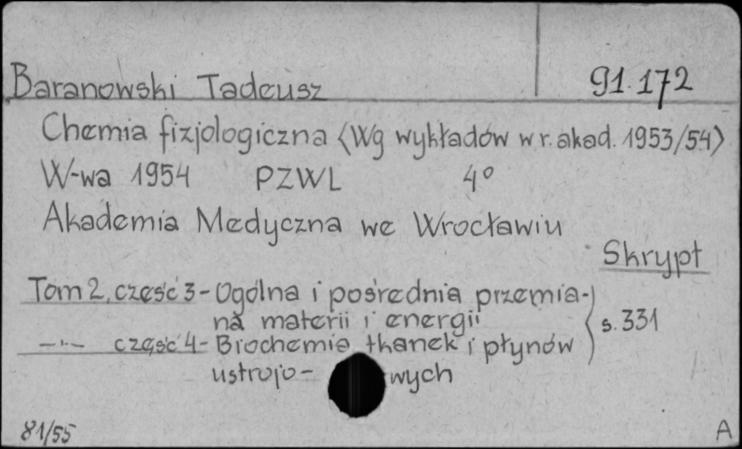 Baranowski Tadeusz 91.172
Chemia fizjologiczna <Wg wykładów w r. akad. 1953/54>
W-wa 1954 PZWL 4°
Akademia Medyczna we Wrocławiu
Skrypt
Tom 2, część 3 - Ogólna i pośrednia przemia-
na materii i energii
s. 331
-"- część 4 - Biochemia tkanek i płynów
ustrojo- wych
81/55 A